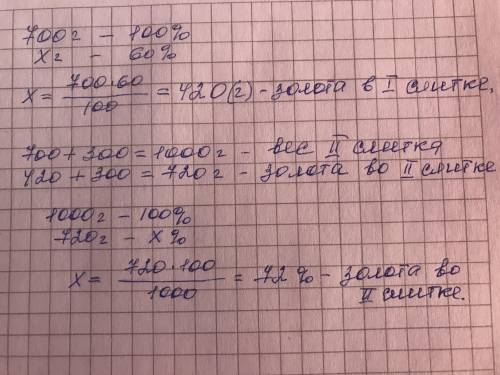 700г – 100%
Xг – 60%
X = 700·60 / 100 = 420(г) – золота в I слитке,
700 + 300 = 1000г – вес II слитка
420 + 300 = 720г – золота во II слитке
1000г – 100%
720г – X%
X = 720·100 / 1000 = 72% – золота во
II слитке.